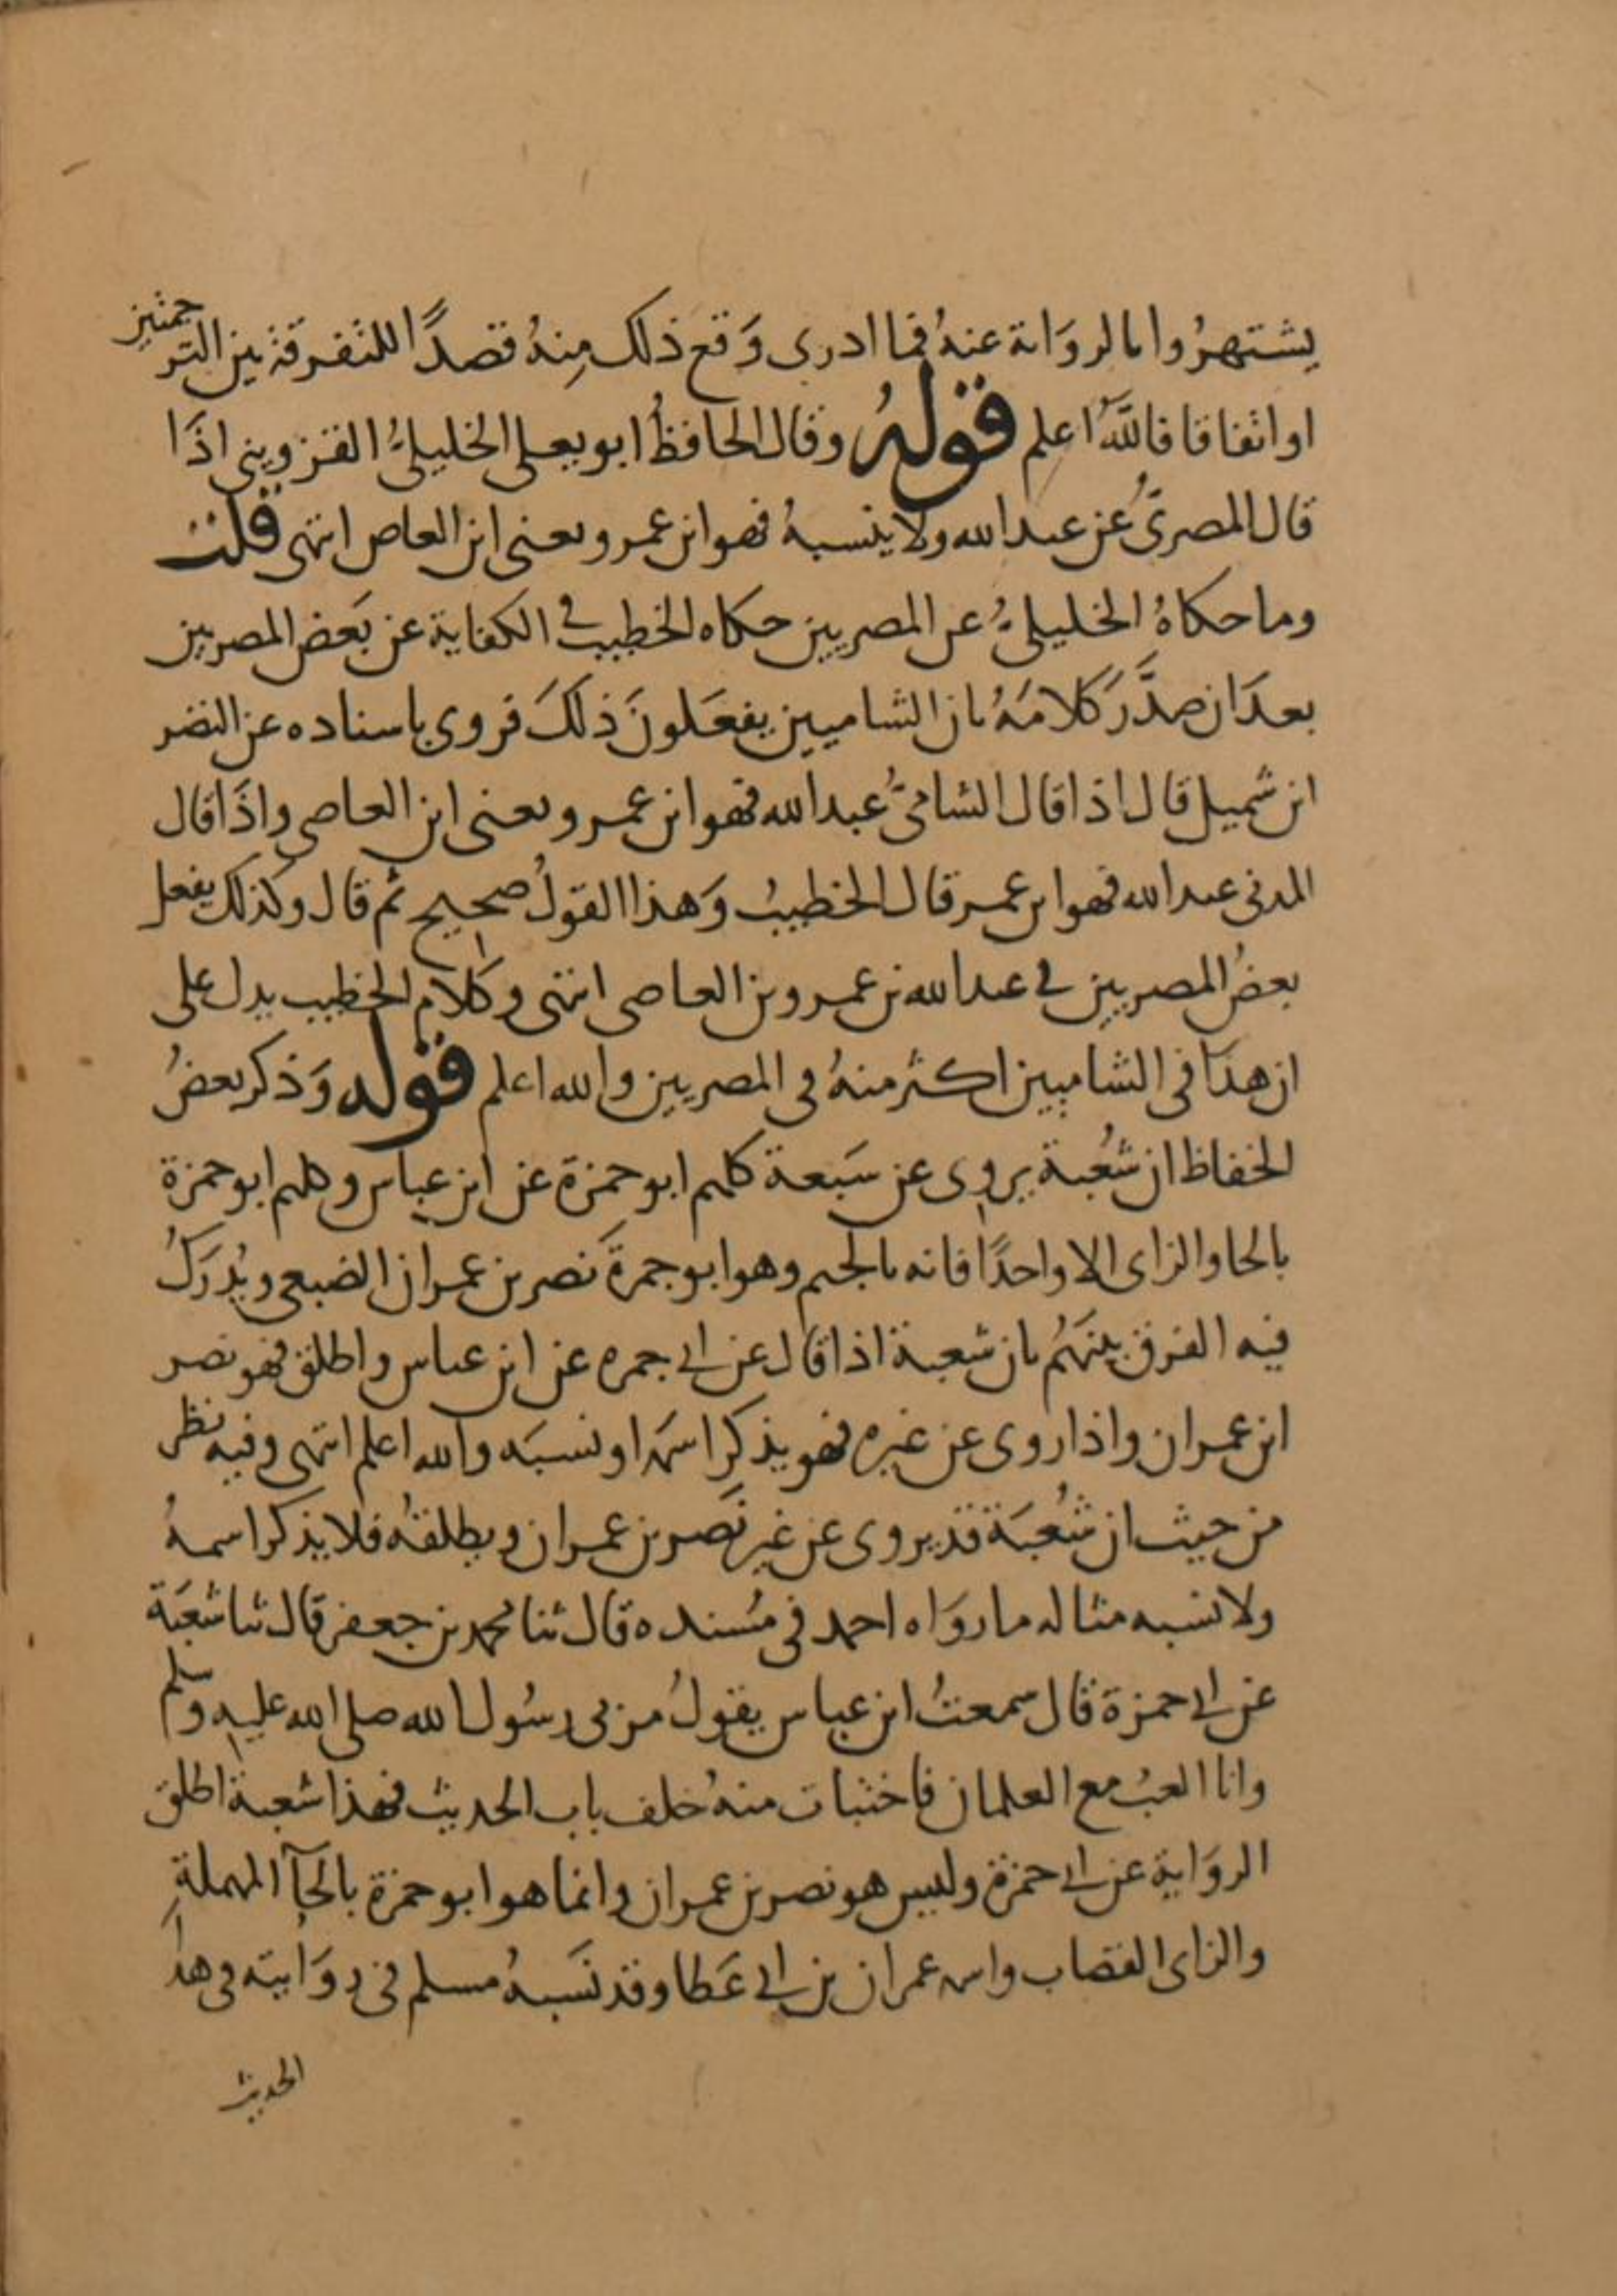 يشتهروا بالرواية عنه فما ادرى وَقع ذلك مِنهُ قصدًا للتفرقة بين الترجمتين
او اتفاقا فاللّٰه اعلم قوله وقال الحافظُ ابو يعلى الخليلىُّ القزوينى اذَا
قال المصرىُّ عن عبد الله ولا ينسبهُ فهو ابن عمرو يعنى ابن العاص انتهى قلت
وما حكاهُ الخليلىُّ عن المصريين حكاه الخطيب فى الكفاية عن بَعض المصريين
بعدَ ان صدَّرَ كلامَهُ بان الشاميين يفعَلونَ ذلكَ فروى باسناده عن النضر
ابن شميل قال اذا قال الشامىُّ عبد الله فهو ابن عمرو يعنى ابن العاصى واذَا قال
المدنى عبد الله فهو ابن عمر قال الخطيبُ وَهذا القولُ صحيح ثم قال وكذلك يفعل
بعضُ المصريين فى عبد الله بن عمرو بن العاصى انتهى وكلام الخطيب يدل على
ان هذَا فى الشاميين اكثر منهُ فى المصريين والله اعلم قوله وَذكر بعضُ
الحفاظ ان شُعبة يروى عن سَبعة كلهم ابو حمزة عن ابن عباس وكلهم ابو حمزة
بالحا والزاى الا واحدًا فانه بالجيم وهو ابو جمرةَ نصر بن عمران الضبعى ويُدرَكُ
فيه الفرق بينهُم بان شعبة اذا قال عن ابى جمره عن ابن عباس واطلق فهو نصر
ابن عمران واذا روى عن غيره فهو يذكر اسمه او نسبَه والله اعلم انتهى وفيه نظر
من حيث ان شُعبَة قد يروى عن غير نَصر بن عمران ويطلقُه فلا يذكر اسمهُ
ولا نسبه مثاله ما روَاه احمد فى مُسنده قال ثنا محمد بن جعفر قال ثنا شعبَة
عن ابى حمزة قال سمعتُ ابن عباس يقولُ مر بى رسُول الله صلى الله عليه وسلم
وانا العبُ مع الغلمان فاختبات منهُ خلف باب الحديث فهذا شعبة اطلق
الروَاية عن ابى حمزة وليس هو نصر بن عمران وانما هو ابو حمزة بالحآ المهملةِ
والزاى القصاب واسمه عمران بن ابى عَطا وقد نَسَبهُ مسلم فى روَايته فى هذَا
الحديث